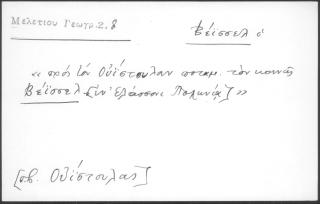 Μελετίου Γεωγρ. 2, 8
Βέϊσσελ ὁ
« πρὸς τὸν Οὐΐστουλαν ποταμ. τὸν κοινῶς
Βέϊσσελ [ἐν Ἐλάσσονι Πολωνίᾳ] »
[πβ. Οὐΐστουλας]